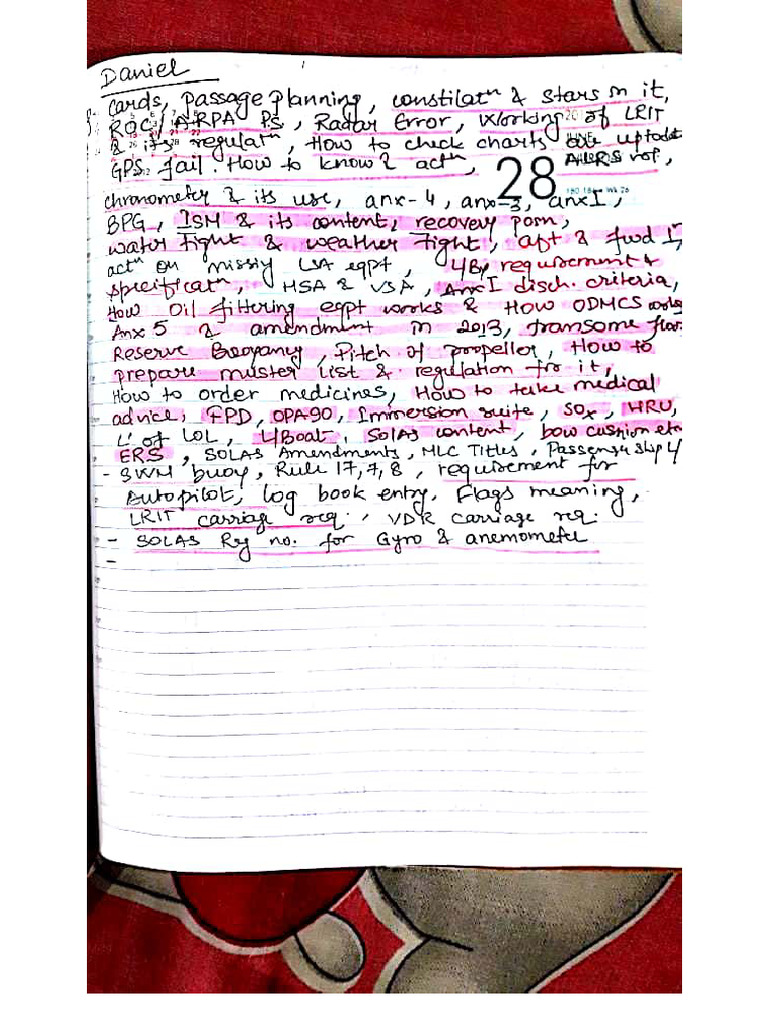 Daniel
cards, Passage Planning, constilatⁿ & stars in it,
ROC/ARPA PS, Radar Error, Working of LRIT
& its regulatⁿ, How to check charts are uptodate
GPS fail. How to know & actⁿ, 28 ALRS vol,
chronometer & its use, anx-4, anx-3, anx I,
BPG, ISM & its content, recovery
water tight & weather tight, aft & fwd
actⁿ on missiy LSA eqpt, requisement &
specificatⁿ, HSA & VSA, Anx I disch. criteria,
How Oil filtering eqpt works & How ODMCS
Anx 5 & amendment in 2013, transome
Reserve Buoyancy, Pitch of propeller, How to
prepare muster list & regulation for it,
How to order medicines, How to take medical
advice, FPD, OPA-90, Immersion suite, SOx, HRU,
L' of LOL, L/Boat, SolAS content, bow cushion
ERS, SOLAS Amendments, MLC Titles, Passenger ship
- SWM buoy, Rule 17, 7, 8, requisement for
Autopilot, log book entry, Flags meaning,
LRIT carriage req., VDR carriage req.
- SOLAS Reg no. for Gyro & anemometer
-